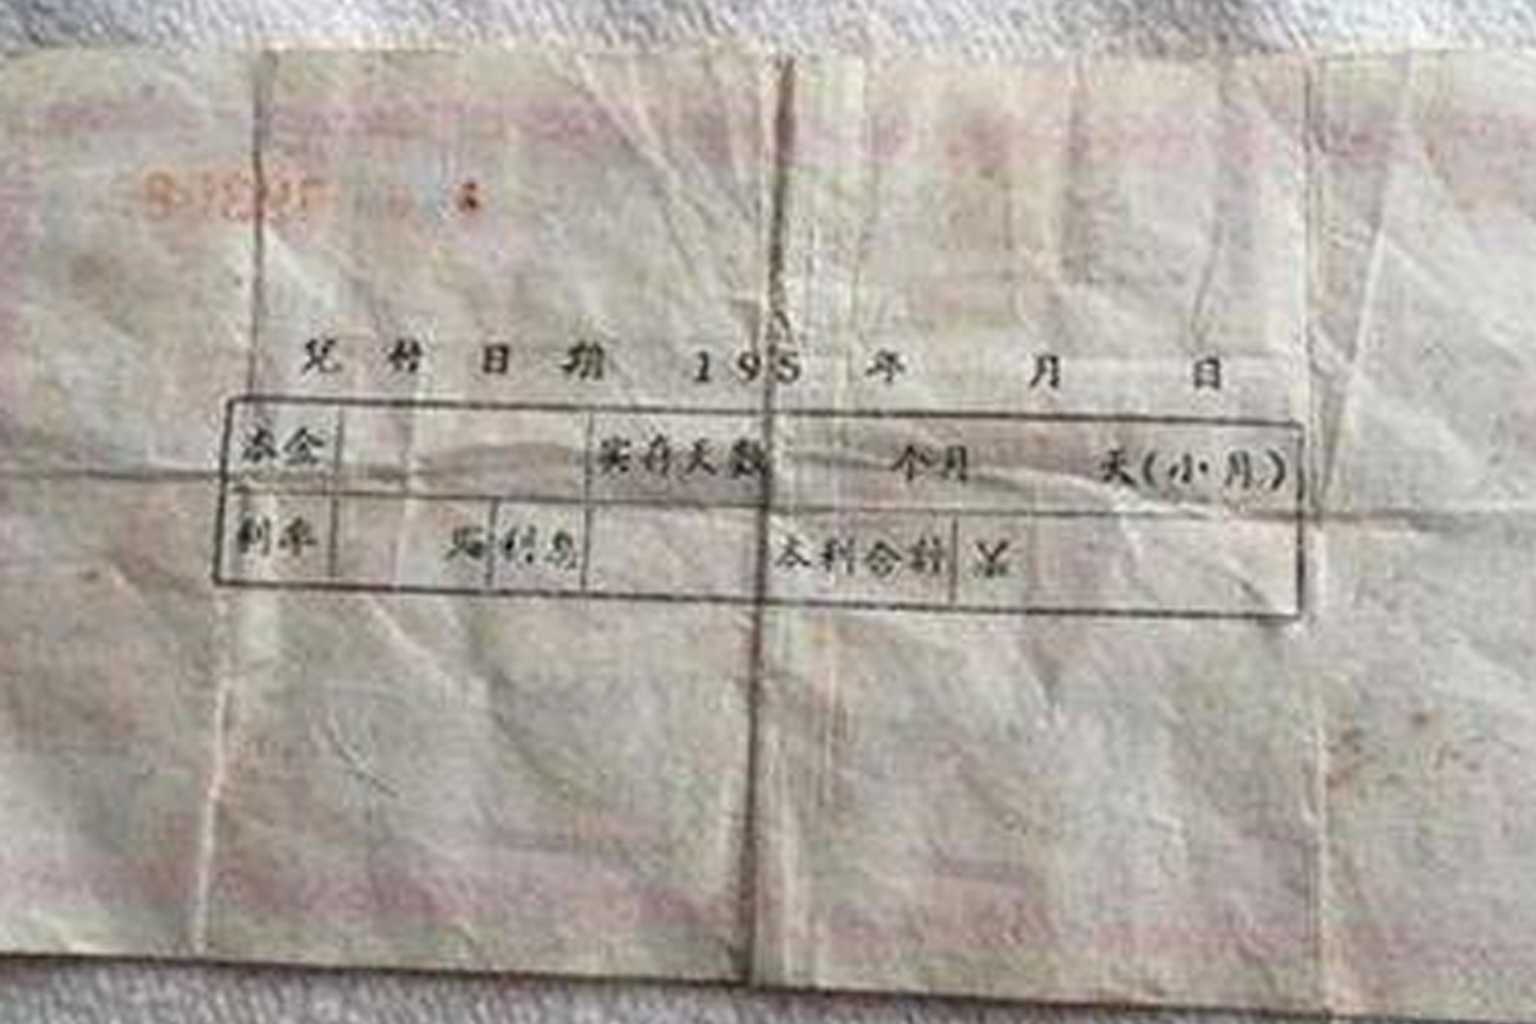 兑付日期 195 年 月 日
本金 实存天数 个月 天(小月)
利率 利息 本利合计 ¥